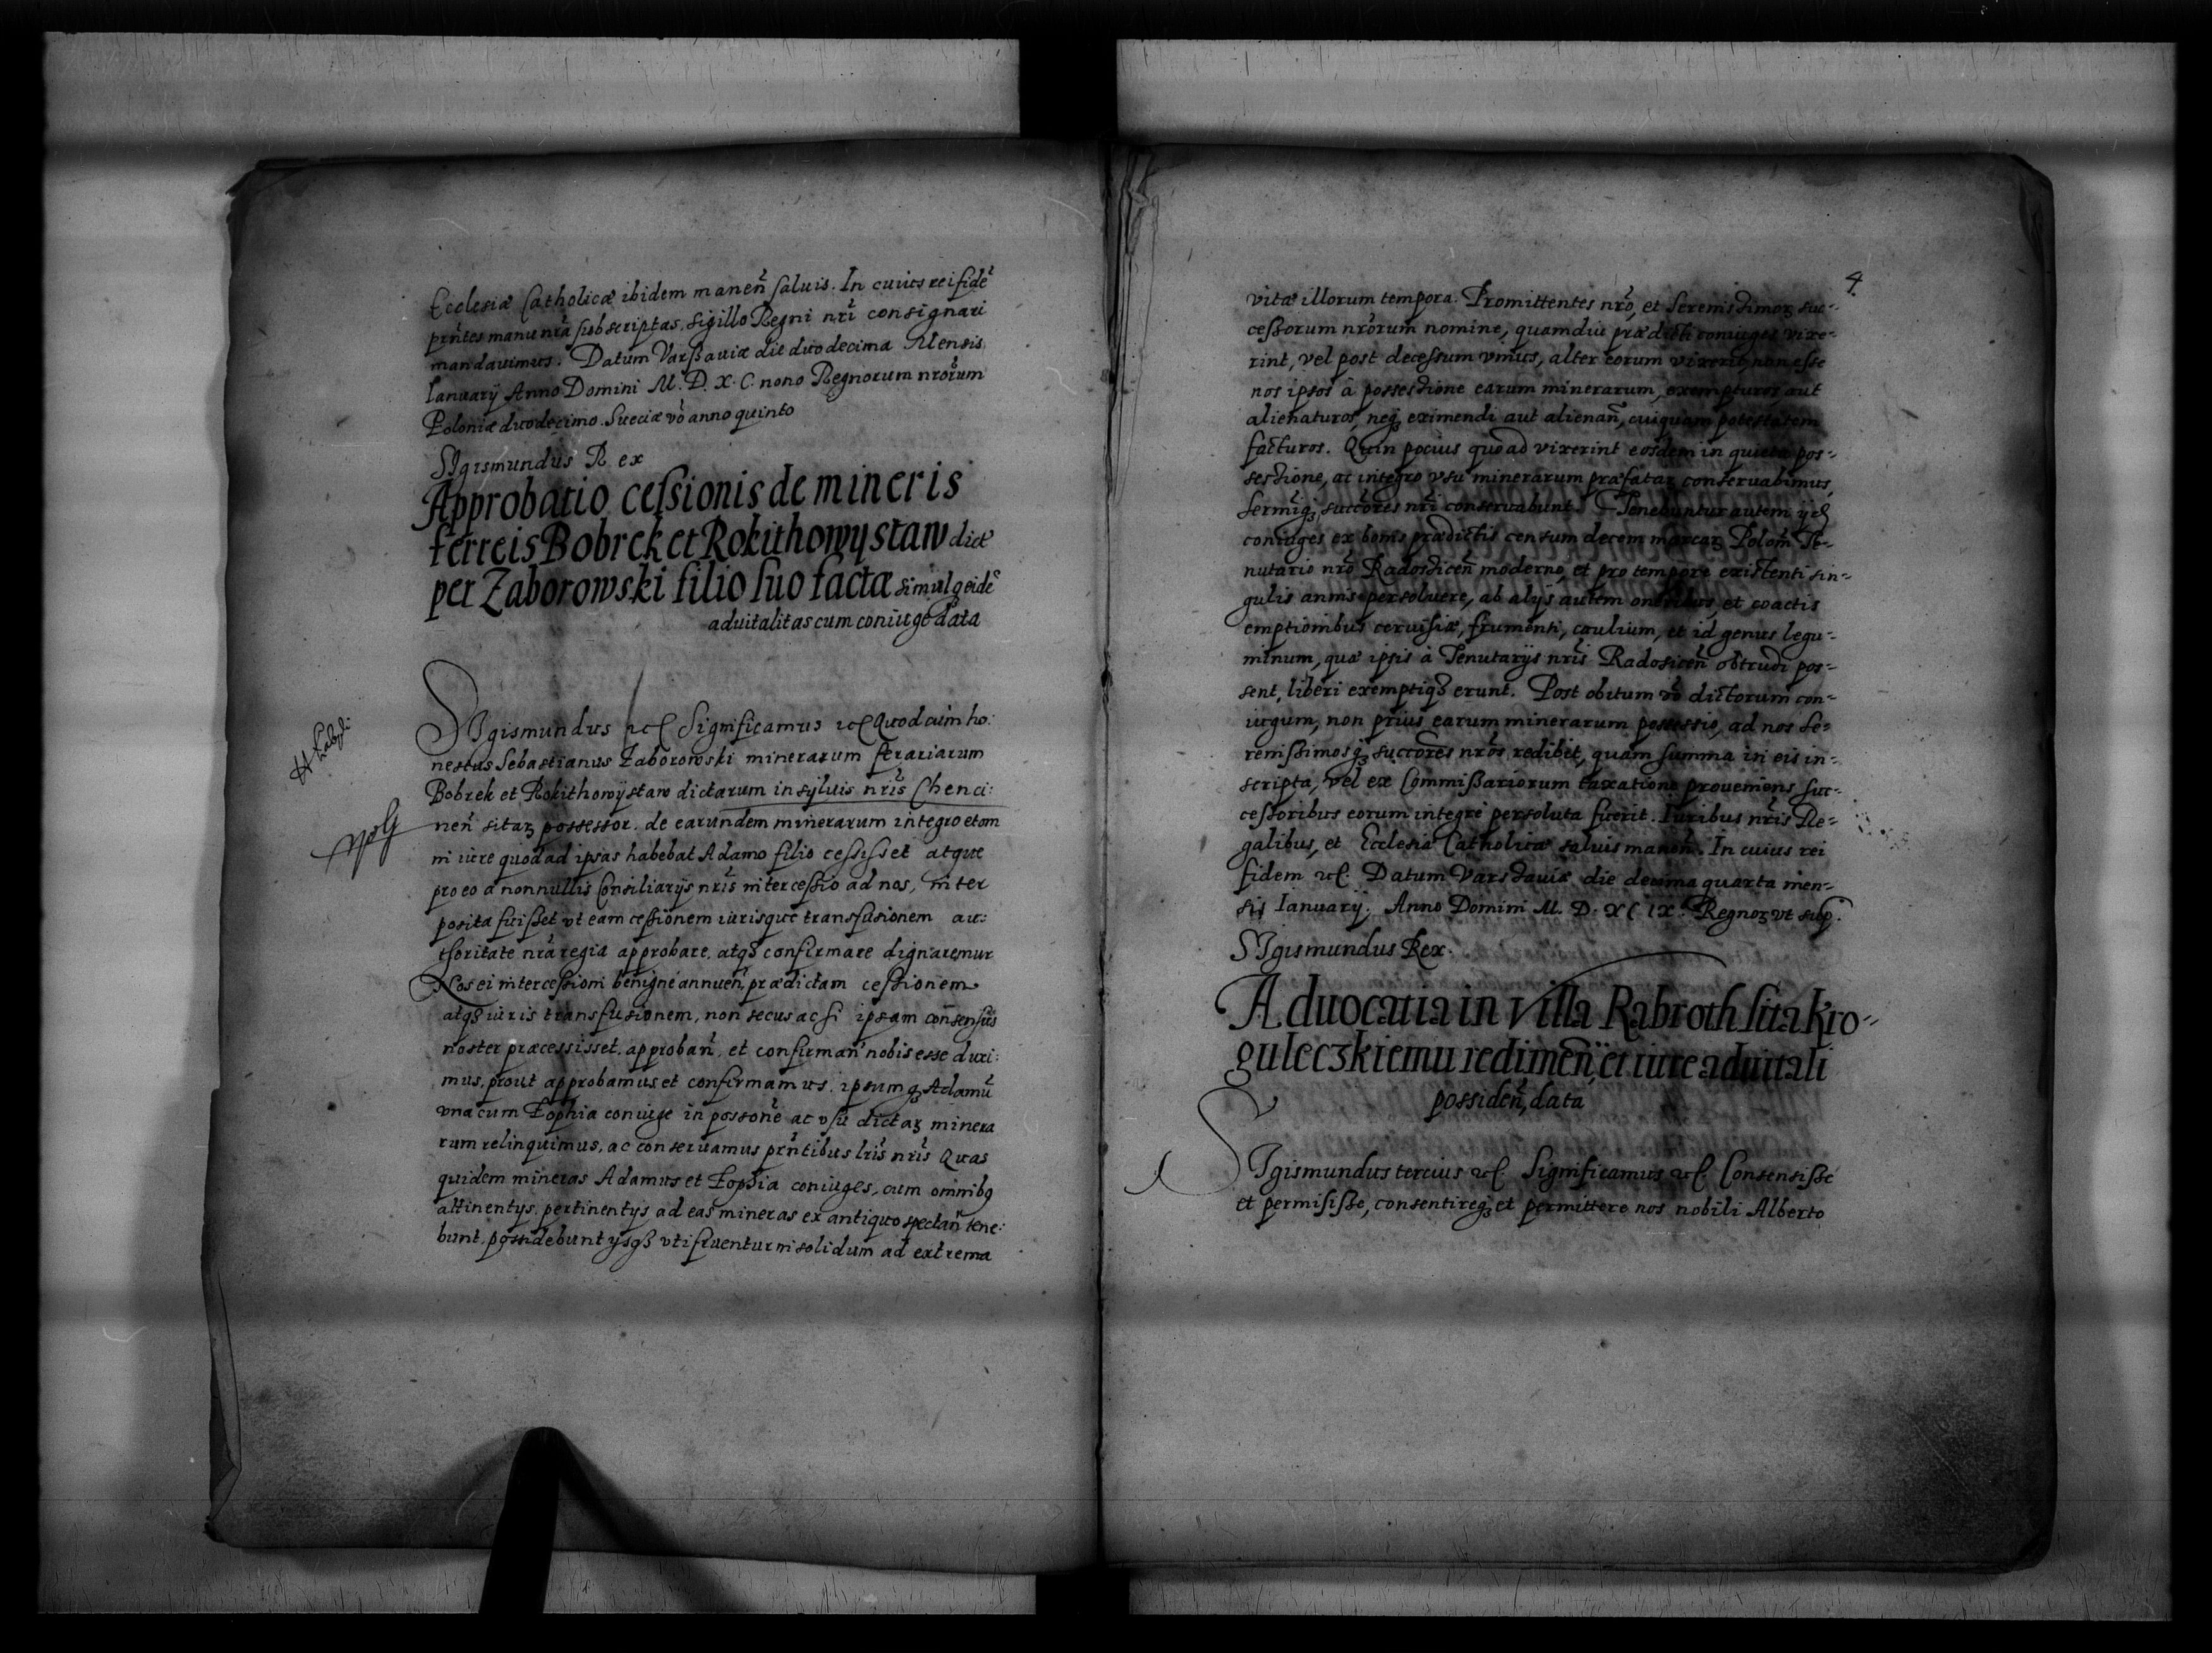 Ecclesiæ Catholicæ ibidem manen̄ saluis. In cuius rei fidē
prn̄tes manu nrā subscriptas, sigillo Regni nrī consignari
mandauimus. Datum Varßauiæ die duodecima Mensis
Ianuarÿ Anno Domini M. D. X. C. nono Regnorum nrōrum
Poloniæ duodecimo. Sueciæ vō anno quinto
SIgismundus Rex
Approbatio cessionis de mineris
ferreis Bobrek et Rokithowÿstaw dict
per Zaborowski filio suo factæ simulq eidē
aduitalitas cum coniuge data
SIgismundus etc Significamus etc Quod cum ho:
nestus Sebastianus Zaborowski minerarum ferariarum
Bobrek et Rokithowÿstaw dictarum in sÿluis nrīs Chenci:
nen̄ sitaꝝ possessor. de earundem minerarum integro et om
ni iure quod ad ipsas habebat Adamo filio cessisset atque
pro eo a nonnullis Consiliarÿs nrīs intercessio ad nos, inter
posita fuisset vt eam cessionem iurisque transfusionem au:
thoritate nrā regia approbare, atqꝫ confirmare dignaremur
Nos ei intercessioni benigné annuen̄, prædictam cessionem
atqꝫ iuris transfusionem, non secus ac si ipsam consensus
noster præcessisset, approban̄, et confirman̄ nobis esse duxi:
mus, prout approbamus et confirmamus, ipsumqꝫ Adamū
vna cum Zophia coniuge in possonē ac vsu dictaꝝ minera
rum relinquimus, ac conseruamus prn̄tibus lrīs nrīs Quas
quidem mineras Adamus et Zophia coniuges, cum omnibꝫ
attinentÿs, pertinentÿs ad eas mineras ex antiquo spectan̄ tene:
bunt, possidebunt ÿsqꝫ vti fruentur in solidum ad extrema
4.
vitæ illorum tempora. Promittentes nrō, et Serenissimoꝝ suc-
cessorum nrōrum nomine, quamdiu prædicti coniuges vixe-
rint, vel post decessum vnius, alter eorum vixerit, non esse
nos ipsos à possessione earum minerarum, exempturos aut
alienaturos, neqꝫ eximendi aut alienan̄, cuiquam potestatem
facturos. Quin pocius quoad vixerint eosdem in quieta pos-
sessione, ac integro vsu minerarum præfataꝝ conseruabimus,
Sermīqꝫ succōres nrī conseruabunt. Tenebuntur autem ÿd
coniuges ex bonis prædictis censum decem marcaꝝ Polon̄ Te-
nutario nrō Radossicen̄ moderno, et pro tempore existenti sin-
gulis annis persoluere, ab alÿs autem oneribus et coactis
emptionibus ceruisiæ, frumenti, caulium, et id genus legu-
minum, quæ ipsis à Tenutarÿs nrīs Radosicen̄ obtrudi pos-
sent, liberi exemptiqꝫ erunt. Post obitum vō dictorum con-
iugum, non prius earum minerarum possessio, ad nos Se-
renissimosqꝫ succōres nrōs redibit, quam summa in eis in-
scripta, vel ex Commissariorum taxatione proueniens suc-
cessoribus eorum integrè persoluta fuerit. Iuribus nrīs Re-
galibus, et Ecclesiæ Catholicæ saluis manen̄. In cuius rei
fidem etc. Datum Varssauiæ die decima quarta men-
sis Ianuarÿ. Anno Domini M. D. XC IX. Regnoꝝ vt sup.
SIgismundus Rex.
Aduocatia in villa Rabroth sita Kro-
guleczkiemu redimen̄, et iure aduitali
possiden̄, data
SIgismundus tercius etc. Significamus etc. Consensisse
et permisisse, consentireqꝫ et permittere nos nobili Alberto